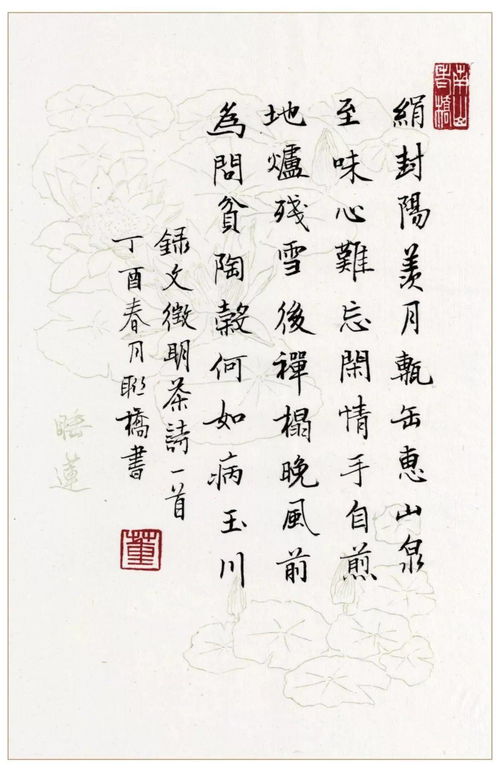 絹封陽羨月缶惠山泉
至味心難忘閑情手自煎
地爐殘雪後禪榻晚風前
為問貧陶穀何如病玉川
録文徵明茶詩一首
丁酉春月橋書
董
睡蓮